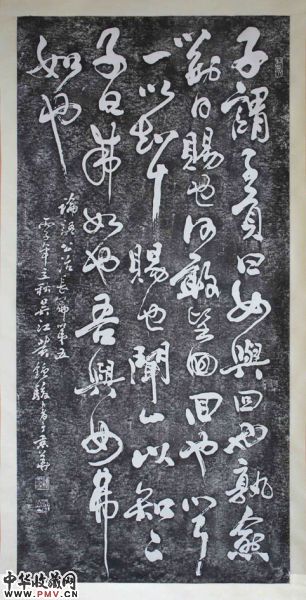 子謂子貢曰女與回也孰愈
對曰賜也何敢望回回也聞
一以知十賜也聞一以知二
子曰弗如也吾與女弗
如也
論語公冶長篇第五
年三秋吴江
中华收藏网
www.PMV.cn